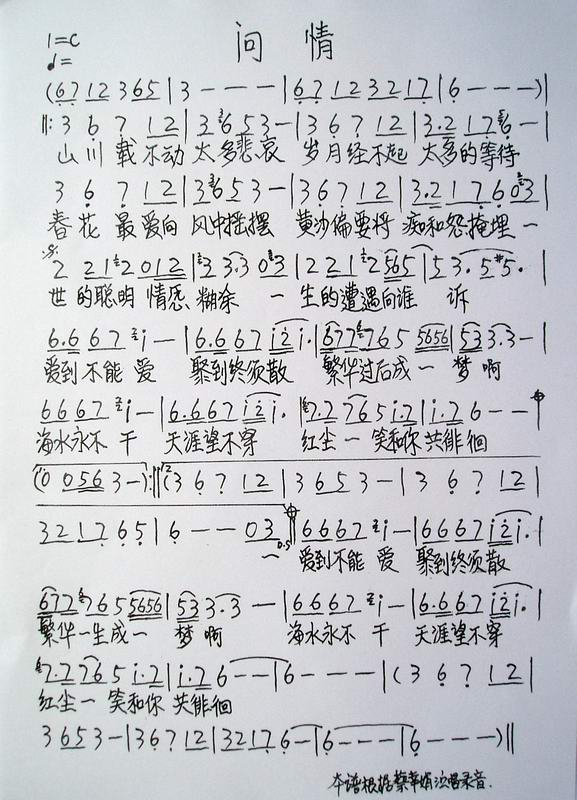 问 情
1=C
♩=
(6̣7̣ 12 365 | 3 - - - | 6̣7̣ 12 3217̣ | 6̣ - - -)|
‖: 3 6̣ 7̣ 12 | 3 3653 - | 3 6̣ 7̣ 12 | 3·2 17̣ 6̣ - |
山川载不动 太多悲哀 岁月经不起 太多的等待
3 6̣ 7̣ 12 | 3653 - | 36̣7̣12 | 3·2 17̣6̣ 03 |
春花最爱向 风中摇摆 黄沙偏要将 痴和怨掩埋 一
2 21 2012 | 3 3·3 03 | 221 2565 | 53· 5#5· |
世的聪明 情愿糊涂 一 生的遭遇向谁 诉
6·6 67 i - | 6·667 i2i· | 677765 5656 | 533·3 - |
爱到不能 爱 聚到终须散 繁华过后成一 梦啊
6667 i - | 6·667 i2i· | 7·2765 i·2 | i·26 - - |
海水永不 干 天涯望不穿 红尘一 笑和你 共徘徊
(0 0563 -):‖(3 6̣ 7̣ 12 | 3653 - | 3 6̣ 7̣ 12 |
3217̣6̣5̣ | 6̣ - - 03 ‖ 6667 i - | 6667 i2i· |
一 爱到不能 爱 聚到终须散
677765 5656 | 533·3 - | 6667 i - | 6·667 i2i· |
繁华一生成一 梦啊 海水永不 干 天涯望不穿
7·2765 i·2 | i·26 - - | 6 - - - | (3 6̣ 7̣ 12 |
红尘一 笑和你 共徘徊
3653 - | 36̣7̣12 | 3217̣6̣ - | 6̣ - - - | 6̣ - - -)‖
本谱根据蔡幸娟演唱录音.